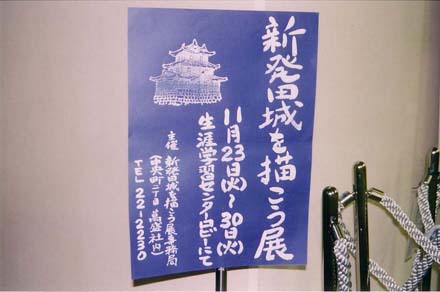 新発田城を描こう展
11月23日(火)〜30日(火)
生涯学習センターロビーにて
主催 新発田城を描こう展事務局
(中央町二丁目 萬盛社内)
TEL 22-2230